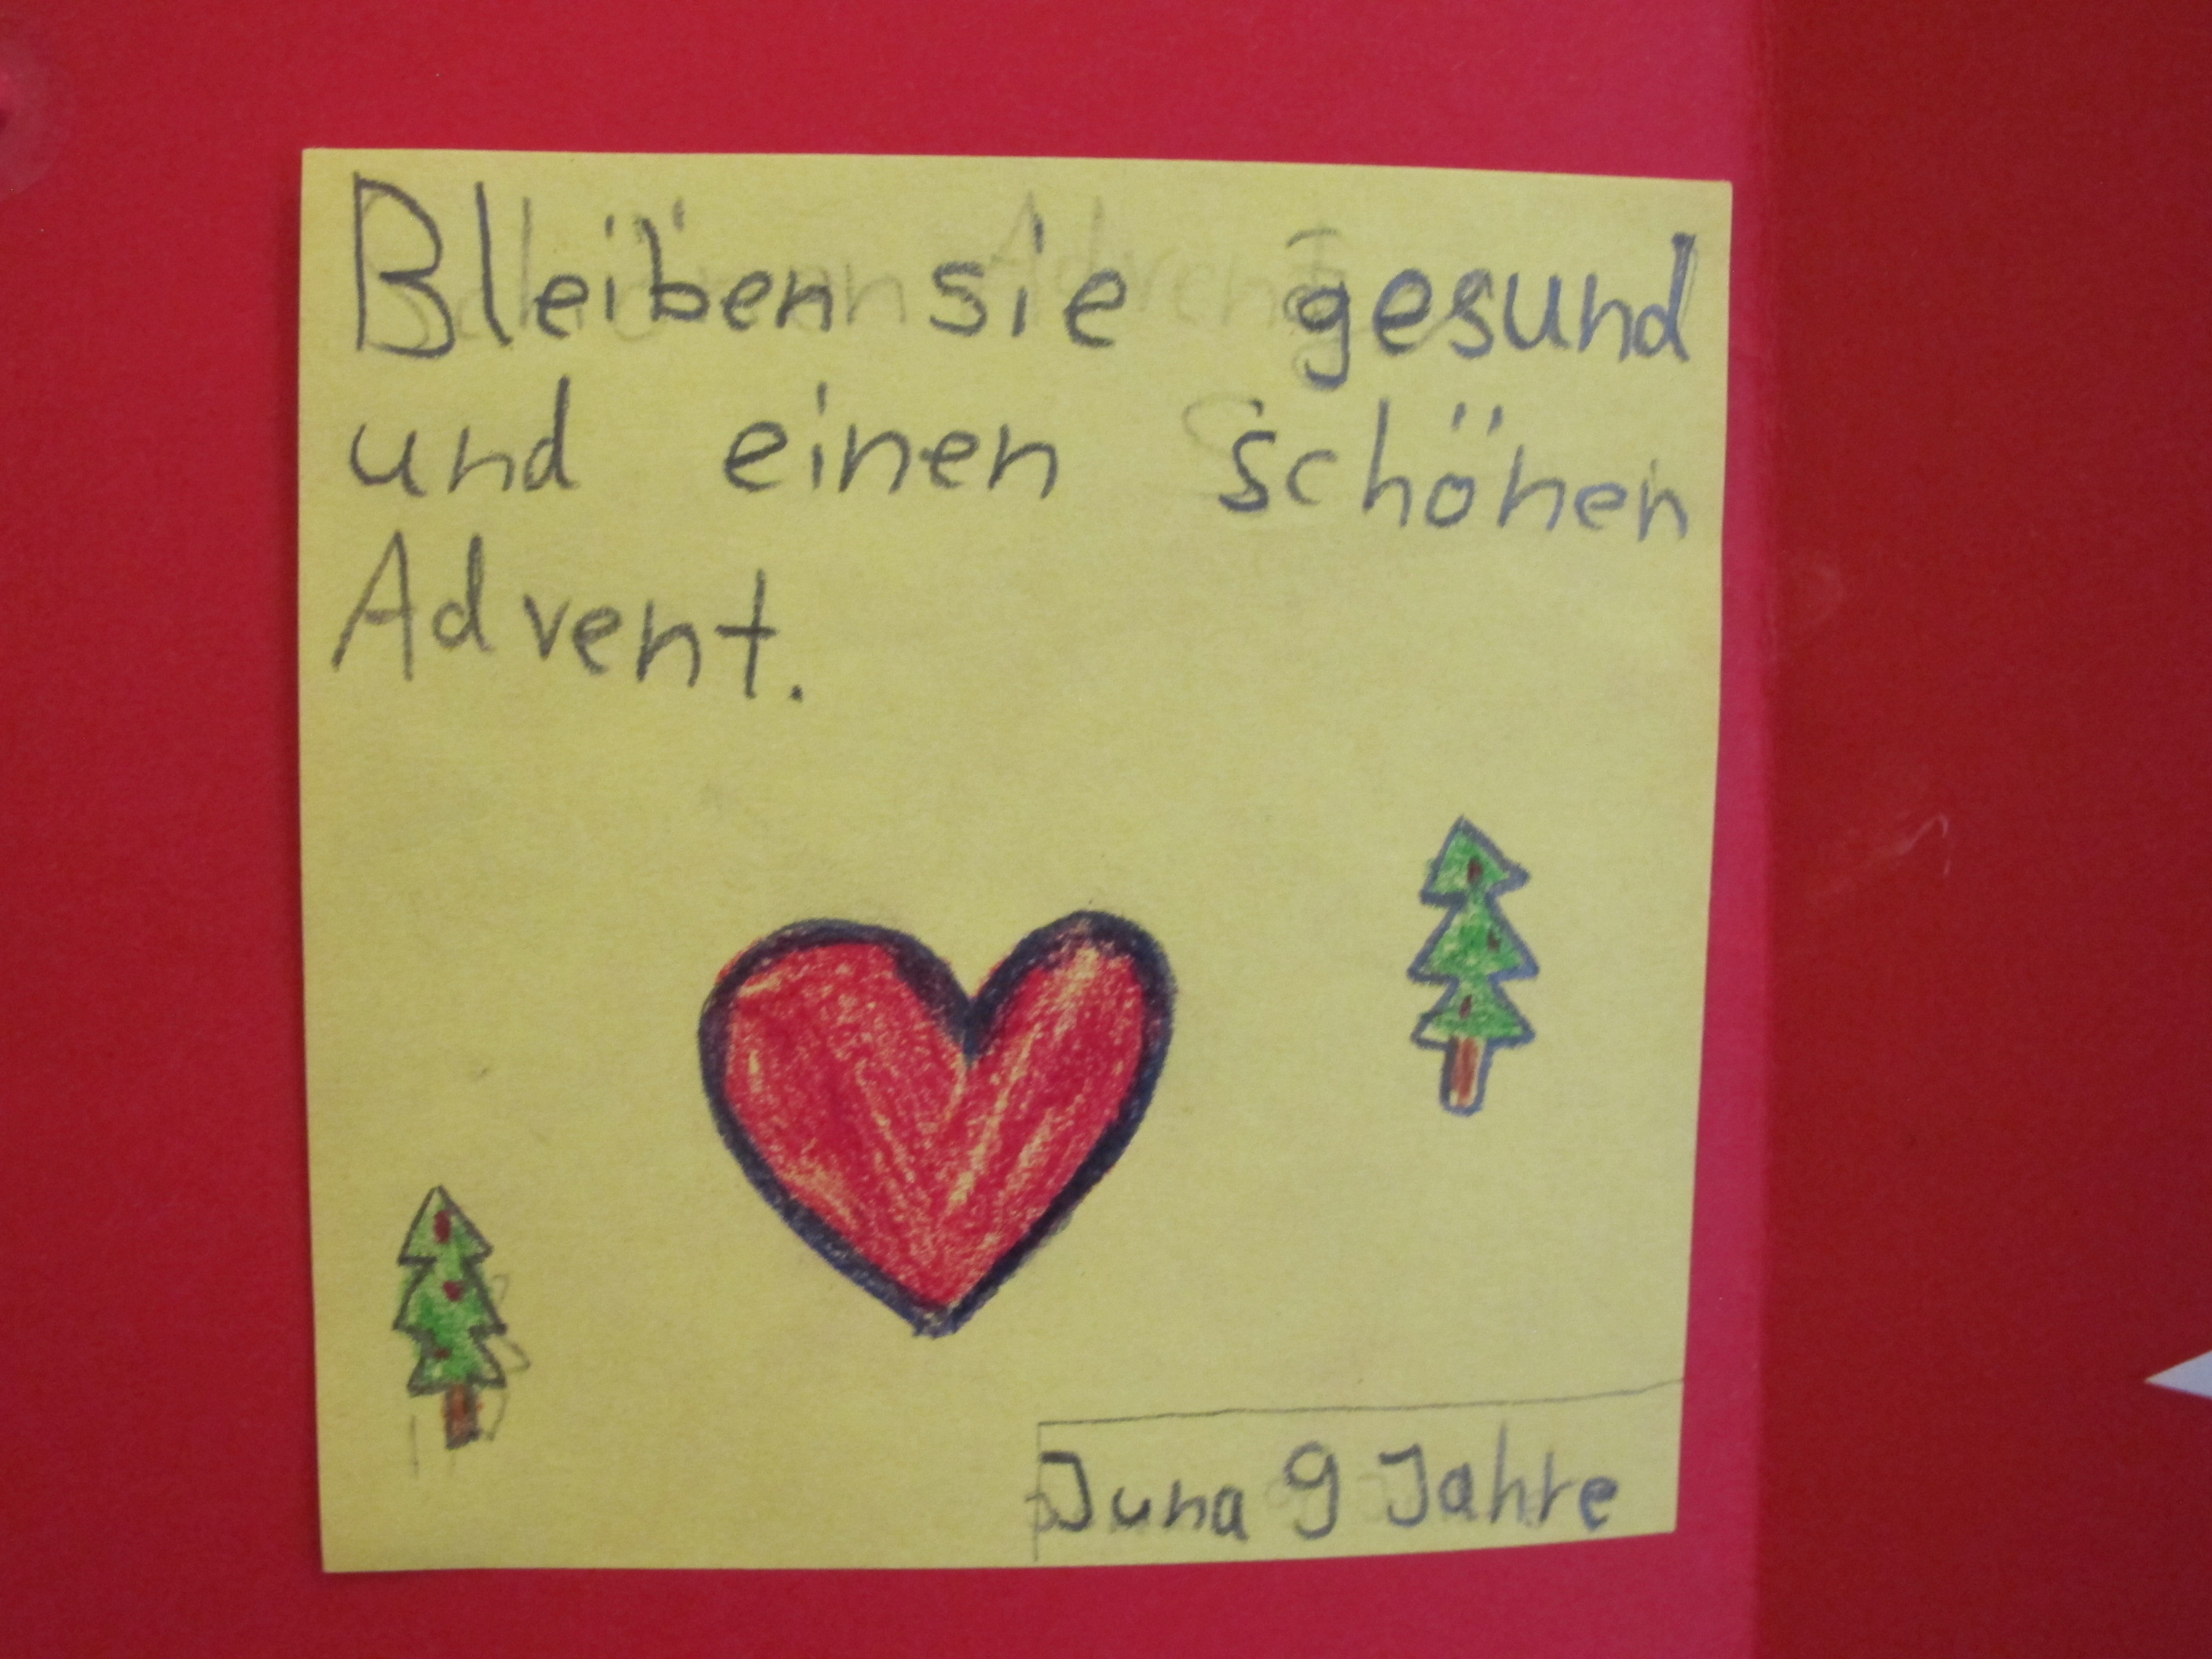 Bleiben sie gesund
und einen schönen
Advent.
Juna 9 Jahre